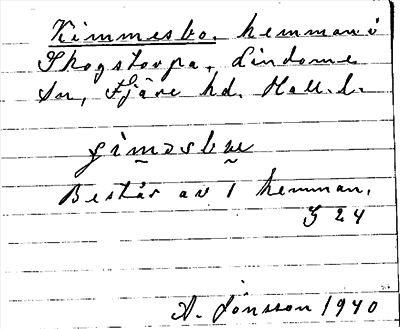 Kimmesbo, hemman i
Skogstorpa, Lindome
Sn, Fjäre hd. Hall. l.
Består av 1 hemman.
A. Jönsson 1940